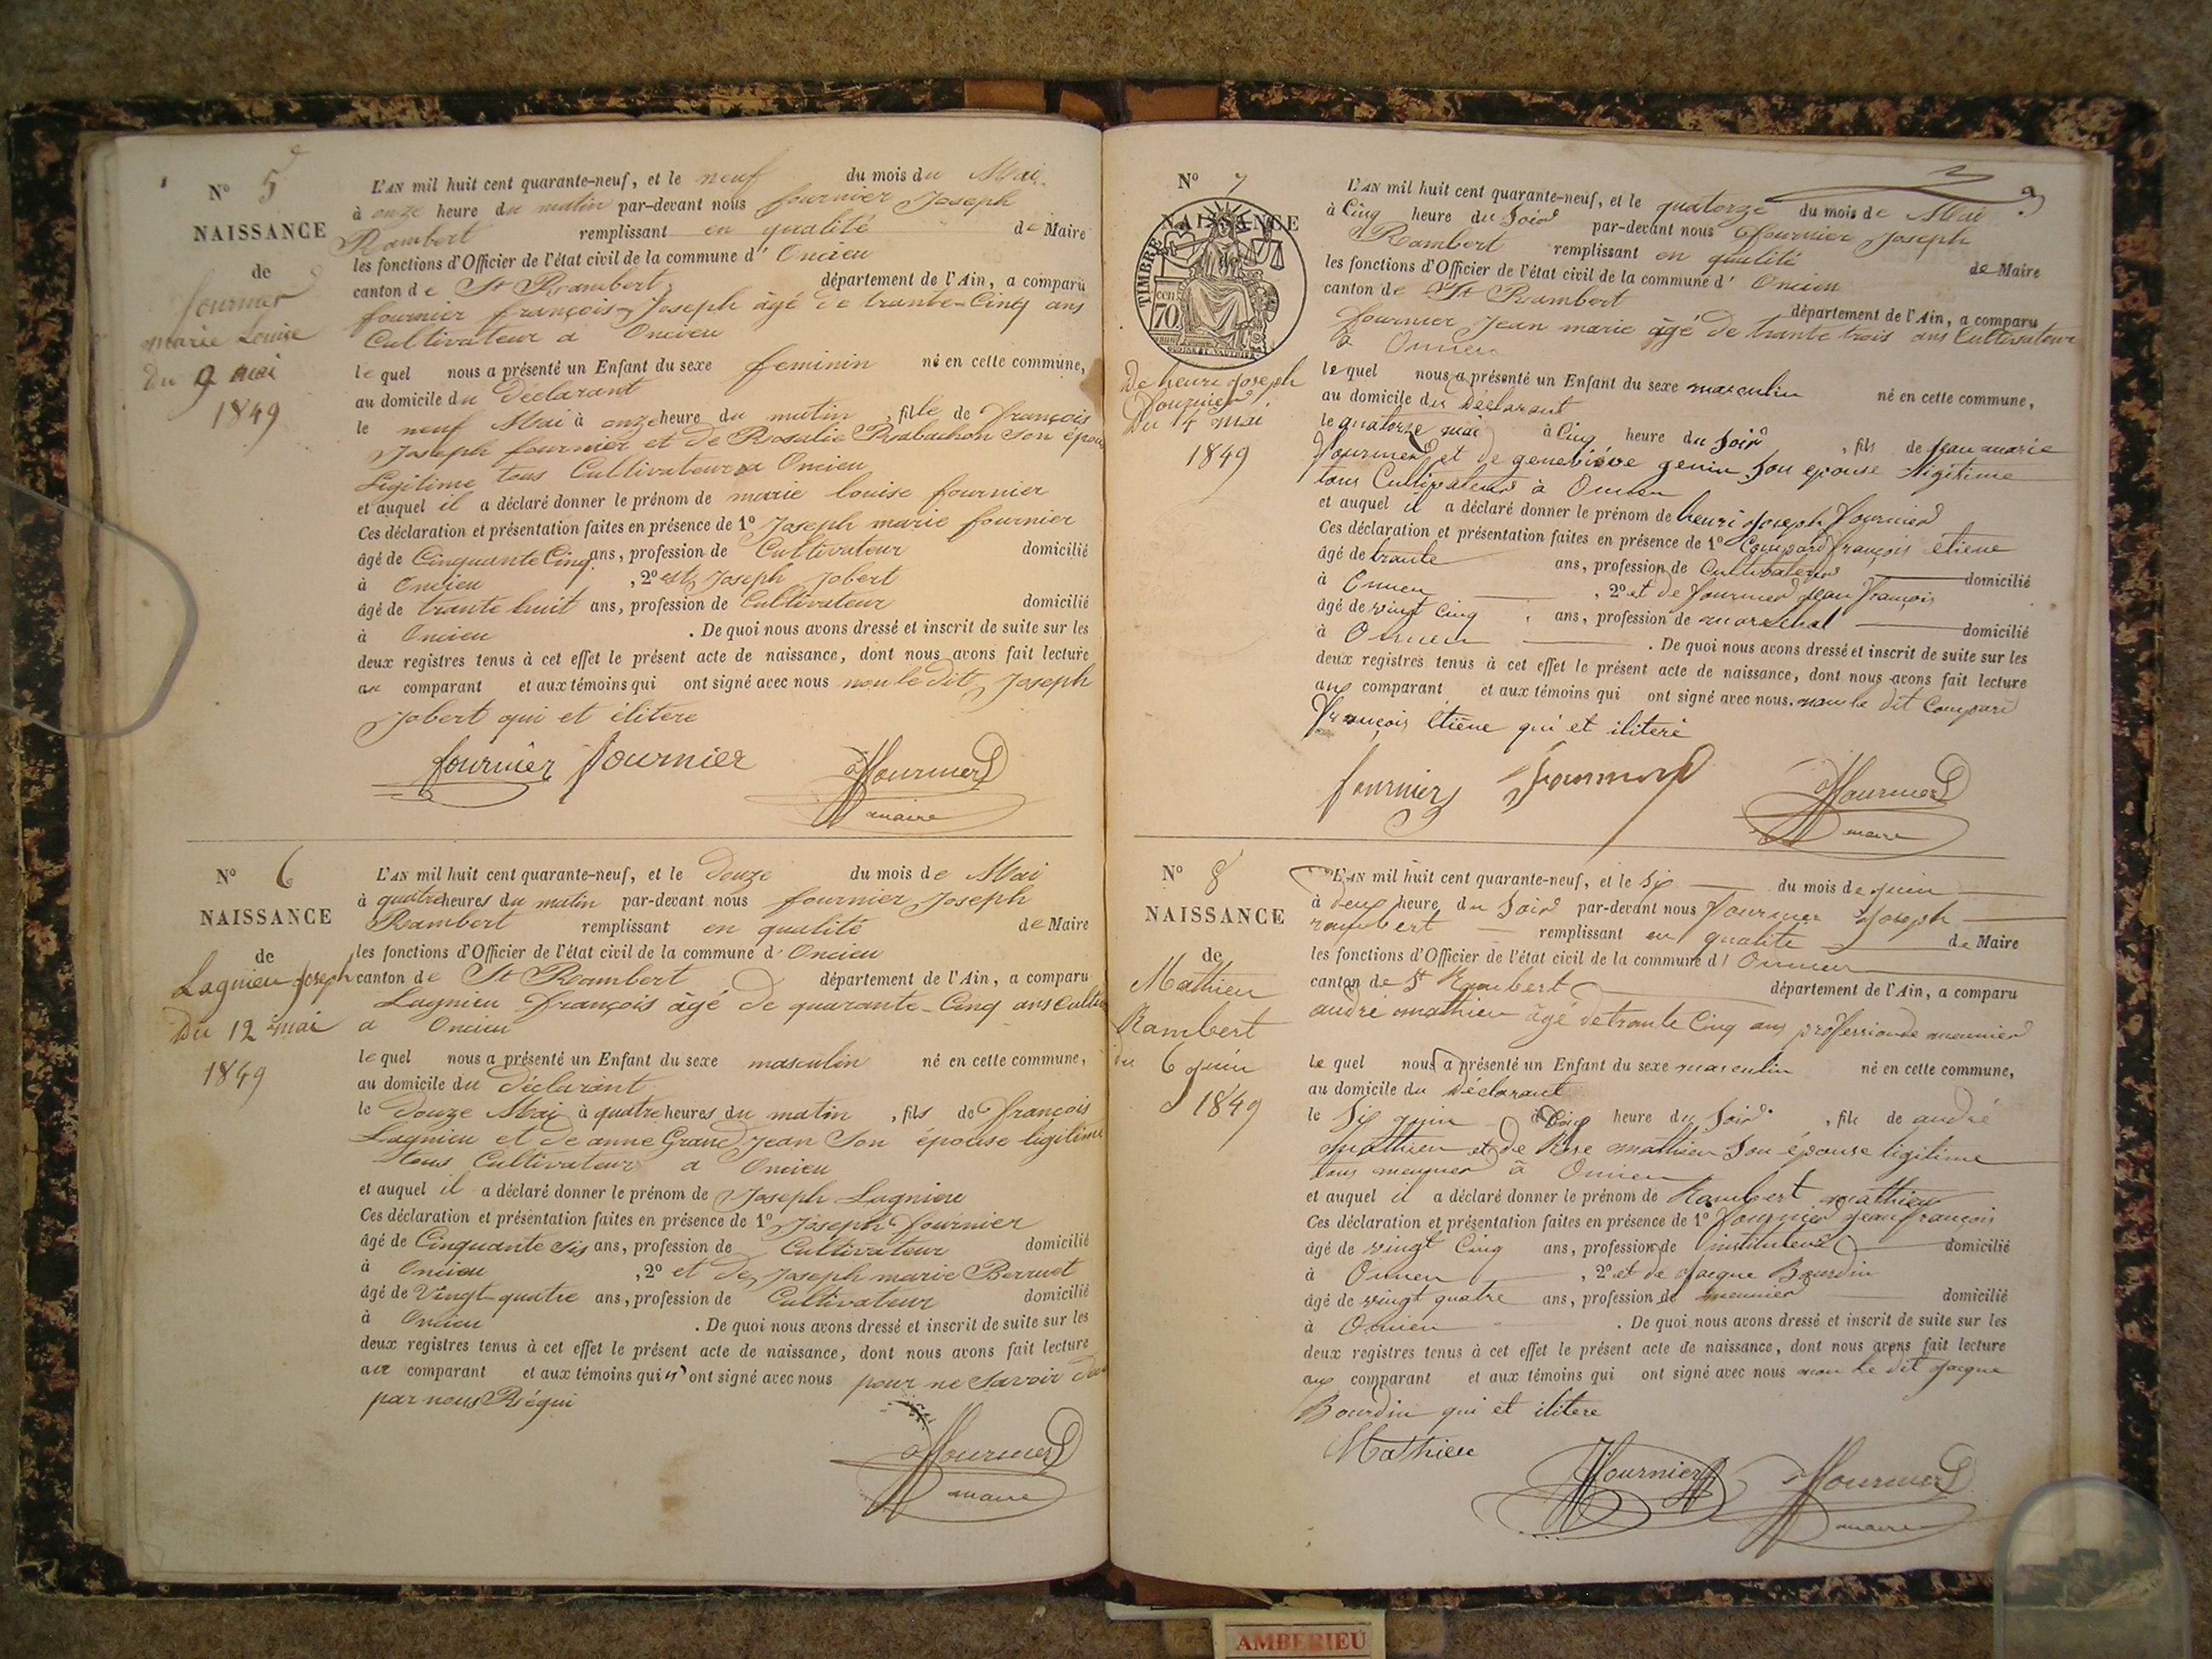 N° 5
NAISSANCE
de
fournier
marie Louise
Du 9 mai
1849
L'AN mil huit cent quarante-neuf, et le neuf du mois du Mai
à onze heure du matin par-devant nous fournier Joseph
Rambert remplissant en qualité de Maire
les fonctions d'Officier de l'état civil de la commune d' Oncieu
canton de St Rambert, département de l'Ain, a comparu
fournier françois Joseph âgé de trante-Cinq ans
Cultivateur a Oncieu
lequel nous a présenté un Enfant du sexe feminin né en cette commune,
au domicile du Déclarant
le neuf Mai à onze heure du matin, fille de françois
Joseph fournier et de Rosalie Rabachon son épouse
Légitime tous Cultivateur a Oncieu
et auquel il a déclaré donner le prénom de marie louise fournier
Ces déclaration et présentation faites en présence de 1° Joseph marie fournier
âgé de Cinquante Cinq ans, profession de Cultivateur domicilié
à Oncieu , 2° et Joseph Jobert
âgé de trante huit ans, profession de Cultivateur domicilié
à Oncieu . De quoi nous avons dressé et inscrit de suite sur les
deux registres tenus à cet effet le présent acte de naissance, dont nous avons fait lecture
au comparant et aux témoins qui ont signé avec nous non le dit Joseph
Jobert qui et ilitere
fournier fournier Fournier
maire
N° 6
NAISSANCE
de
Lagnieu Joseph
Du 12 mai
1849
L'AN mil huit cent quarante-neuf, et le Douze du mois de Mai
à quatre heures du matin par-devant nous fournier Joseph
Rambert remplissant en qualité de Maire
les fonctions d'Officier de l'état civil de la commune d' Oncieu
canton de St Rambert département de l'Ain, a comparu
Lagnieu françois âgé de quarante-Cinq ans
a Oncieu
lequel nous a présenté un Enfant du sexe masculin né en cette commune,
au domicile du Déclarant
le Douze Mai à quatre heures du matin, fils de françois
Lagnieu et de anne Grand Jean Son épouse ligitime
tous Cultivateur a Oncieu
et auquel il a déclaré donner le prénom de Joseph Lagnieu
Ces déclaration et présentation faites en présence de 1° Joseph fournier
âgé de Cinquante sis ans, profession de Cultivateur domicilié
à Oncieu , 2° et de Joseph marie Berruet
âgé de Vingt quatre ans, profession de Cultivateur domicilié
à Oncieu . De quoi nous avons dressé et inscrit de suite sur les
deux registres tenus à cet effet le présent acte de naissance, dont nous avons fait lecture
au comparant et aux témoins qui n'ont signé avec nous pour ne Savoir De
par nous Réqui
Fournier
maire
N° 7
NAISSANCE
TIMBRE
70 cen
De henri Joseph
Fournier
Du 14 mai
1849
L'AN mil huit cent quarante-neuf, et le quatorze du mois de Mai
à Cinq heure du Soir par-devant nous fournier Joseph
Rambert remplissant en qualité de Maire
les fonctions d'Officier de l'état civil de la commune d' Oncieu
canton de St Rambert département de l'Ain, a comparu
fournier Jean marie âgé de trante trois ans Cultivateur
a Oncieu
lequel nous a présenté un Enfant du sexe masculin né en cette commune,
au domicile du Déclarant
le quatorze mai à Cinq heure du Soir, fils de Jean marie
Fournier et de geneviéve genin Son epouse ligitime
tous Cultivateur à Oncieu
et auquel il a déclaré donner le prénom de henri joseph Fournier
Ces déclaration et présentation faites en présence de 1° Compard françois étiene
âgé de trante ans, profession de Cultivateur domicilié
à Oncieu , 2° et de Fournier Jean François
âgé de vingt Cinq ans, profession de marechal domicilié
à Oncieu . De quoi nous avons dressé et inscrit de suite sur les
deux registres tenus à cet effet le présent acte de naissance, dont nous avons fait lecture
aux comparant et aux témoins qui ont signé avec nous. non le dit Compard
François étiéne qui et iliteré
fournier Fournier
maire
N° 8
NAISSANCE
de
Mathieu
Rambert
du 6 juin
1849
L'AN mil huit cent quarante-neuf, et le Six du mois de juin
à deux heure du Soir par-devant nous Fournier Joseph
rambert remplissant en qualité de Maire
les fonctions d'Officier de l'état civil de la commune d' Oncieu
canton de St Rambert département de l'Ain, a comparu
andré mathieu âgé de trante Cinq ans profession de meunier
le quel nous a présenté un Enfant du sexe masculin né en cette commune,
au domicile du Déclarant
le Six juin à heure du Soir, fils de andré
mathieu et de Rose mathieu Son épouse ligitime
tous meunier à Oncieu
et auquel il a déclaré donner le prénom de Rambert mathieu
Ces déclaration et présentation faites en présence de 1° Fournier Jean françois
âgé de vingt Cinq ans, profession de instituteur domicilié
à Oncieu , 2° et de Jacque Bourdin
âgé de vingt quatre ans, profession de meunier domicilié
à Oncieu . De quoi nous avons dressé et inscrit de suite sur les
deux registres tenus à cet effet le présent acte de naissance, dont nous avons fait lecture
aux comparant et aux témoins qui ont signé avec nous non le dit Jacque
Bourdin qui et ilitere
Mathieu
Fournier Fournier
maire
AMBERIEU